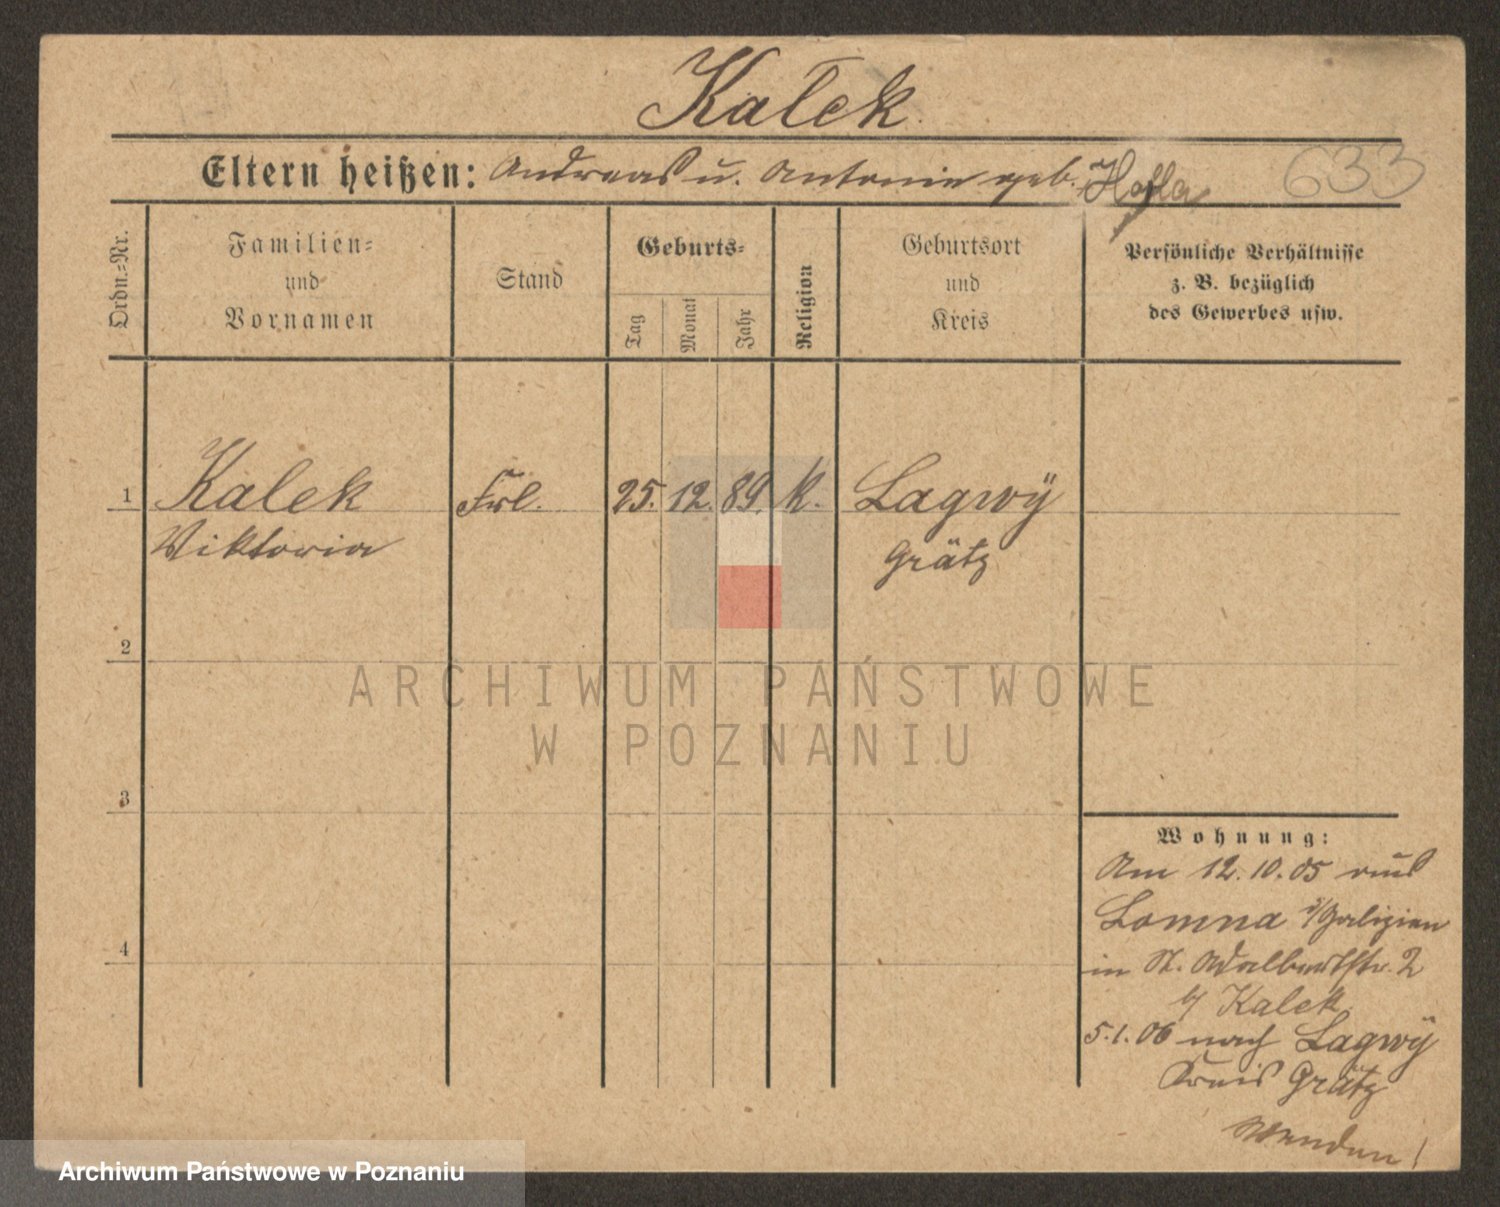 Kałek
Eltern heißen: Andreas u. Antonie geb. Hofla
633
Ordn.-Nr.
Familien-
und
Vornamen
Stand
Geburts-
Tag
Monat
Jahr
Religion
Geburtsort
und
Kreis
Persönliche Verhältnisse
z. B. bezüglich
des Gewerbes usw.
1 Kalek Frl. 25. 12. 89. k. Lagwÿ
Viktoria Grätz
2
ARCHIWUM PAŃSTWOWE
W POZNANIU
3
Wohnung:
Am 12.10.05 aus
Lomna i/Galizien
4
in St. Adalbertstr. 2
b/ Kalek
5.1.06 nach Lagwÿ
Kreis Grätz
Wenden!
Archiwum Państwowe w Poznaniu